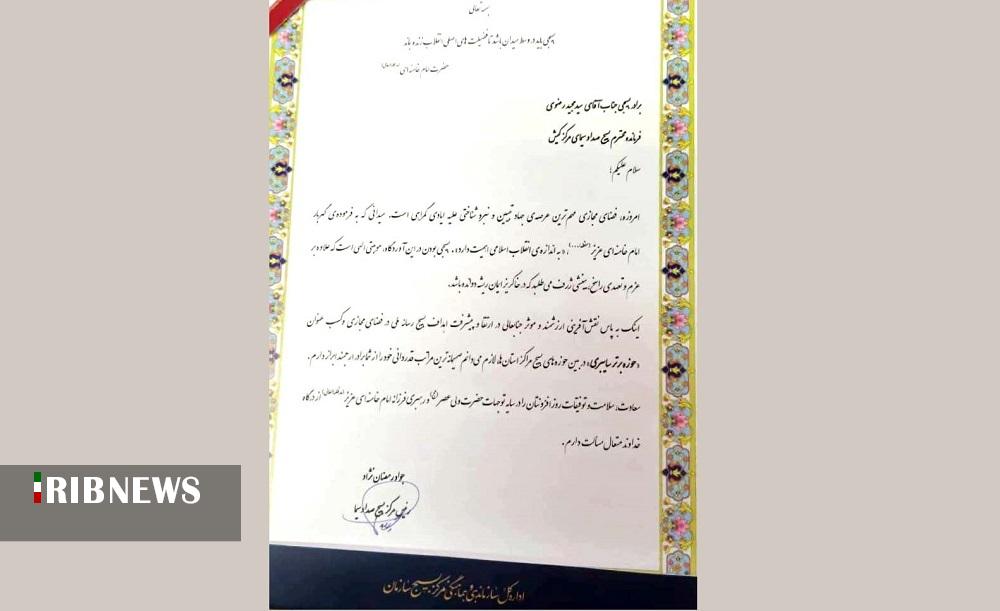 بسمه تعالی
بسیجی باید در وسط میدان باشد تا فضیلت های اصلی انقلاب زنده بماند
حضرت امام خامنه ای (مدظله العالی)
برادر بسیجی جناب آقای سید مجید رضوی
فرمانده محترم بسیج صدا و سیمای مرکز کیش
سلام علیکم؛
امروزه، فضای مجازی مهم ترین عرصه ی جهاد تبیین و نبرد شناختی علیه ایادی گمراهی است. میدانی که به فرموده ی گهربار
امام خامنه ای عزیز ، «به اندازه ی انقلاب اسلامی اهمیت دارد». بسیجی بودن در این آوردگاه، موهبتی الهی است که علاوه بر
عزم و تعهدی راسخ، بینشی ژرف می طلبد که در خاکریز ایمان ریشه دوانده باشد.
اینک به پاس نقش آفرینی ارزشمند و موثر جنابعالی در ارتقا و پیشرفت اهداف بسیج رسانه ملی در فضای مجازی و کسب عنوان
«حوزه برتر سایبری» در بین حوزه های بسیج مراکز استان ها، لازم می دانم صمیمانه ترین مراتب قدردانی خود را از شما برادر ارجمند ابراز دارم.
سعادت، سلامت و توفیقات روز افزونتان را در سایه توجهات حضرت ولی عصر(عج) و رهبری فرزانه امام خامنه ای عزیز (مدظله العالی) از درگاه
خداوند متعال مسألت دارم.
جواد رمضان نژاد
رئیس مرکز بسیج صدا و سیما
اداره کل سازماندهی و هماهنگی مرکز بسیج سازمان
RIBNEWS